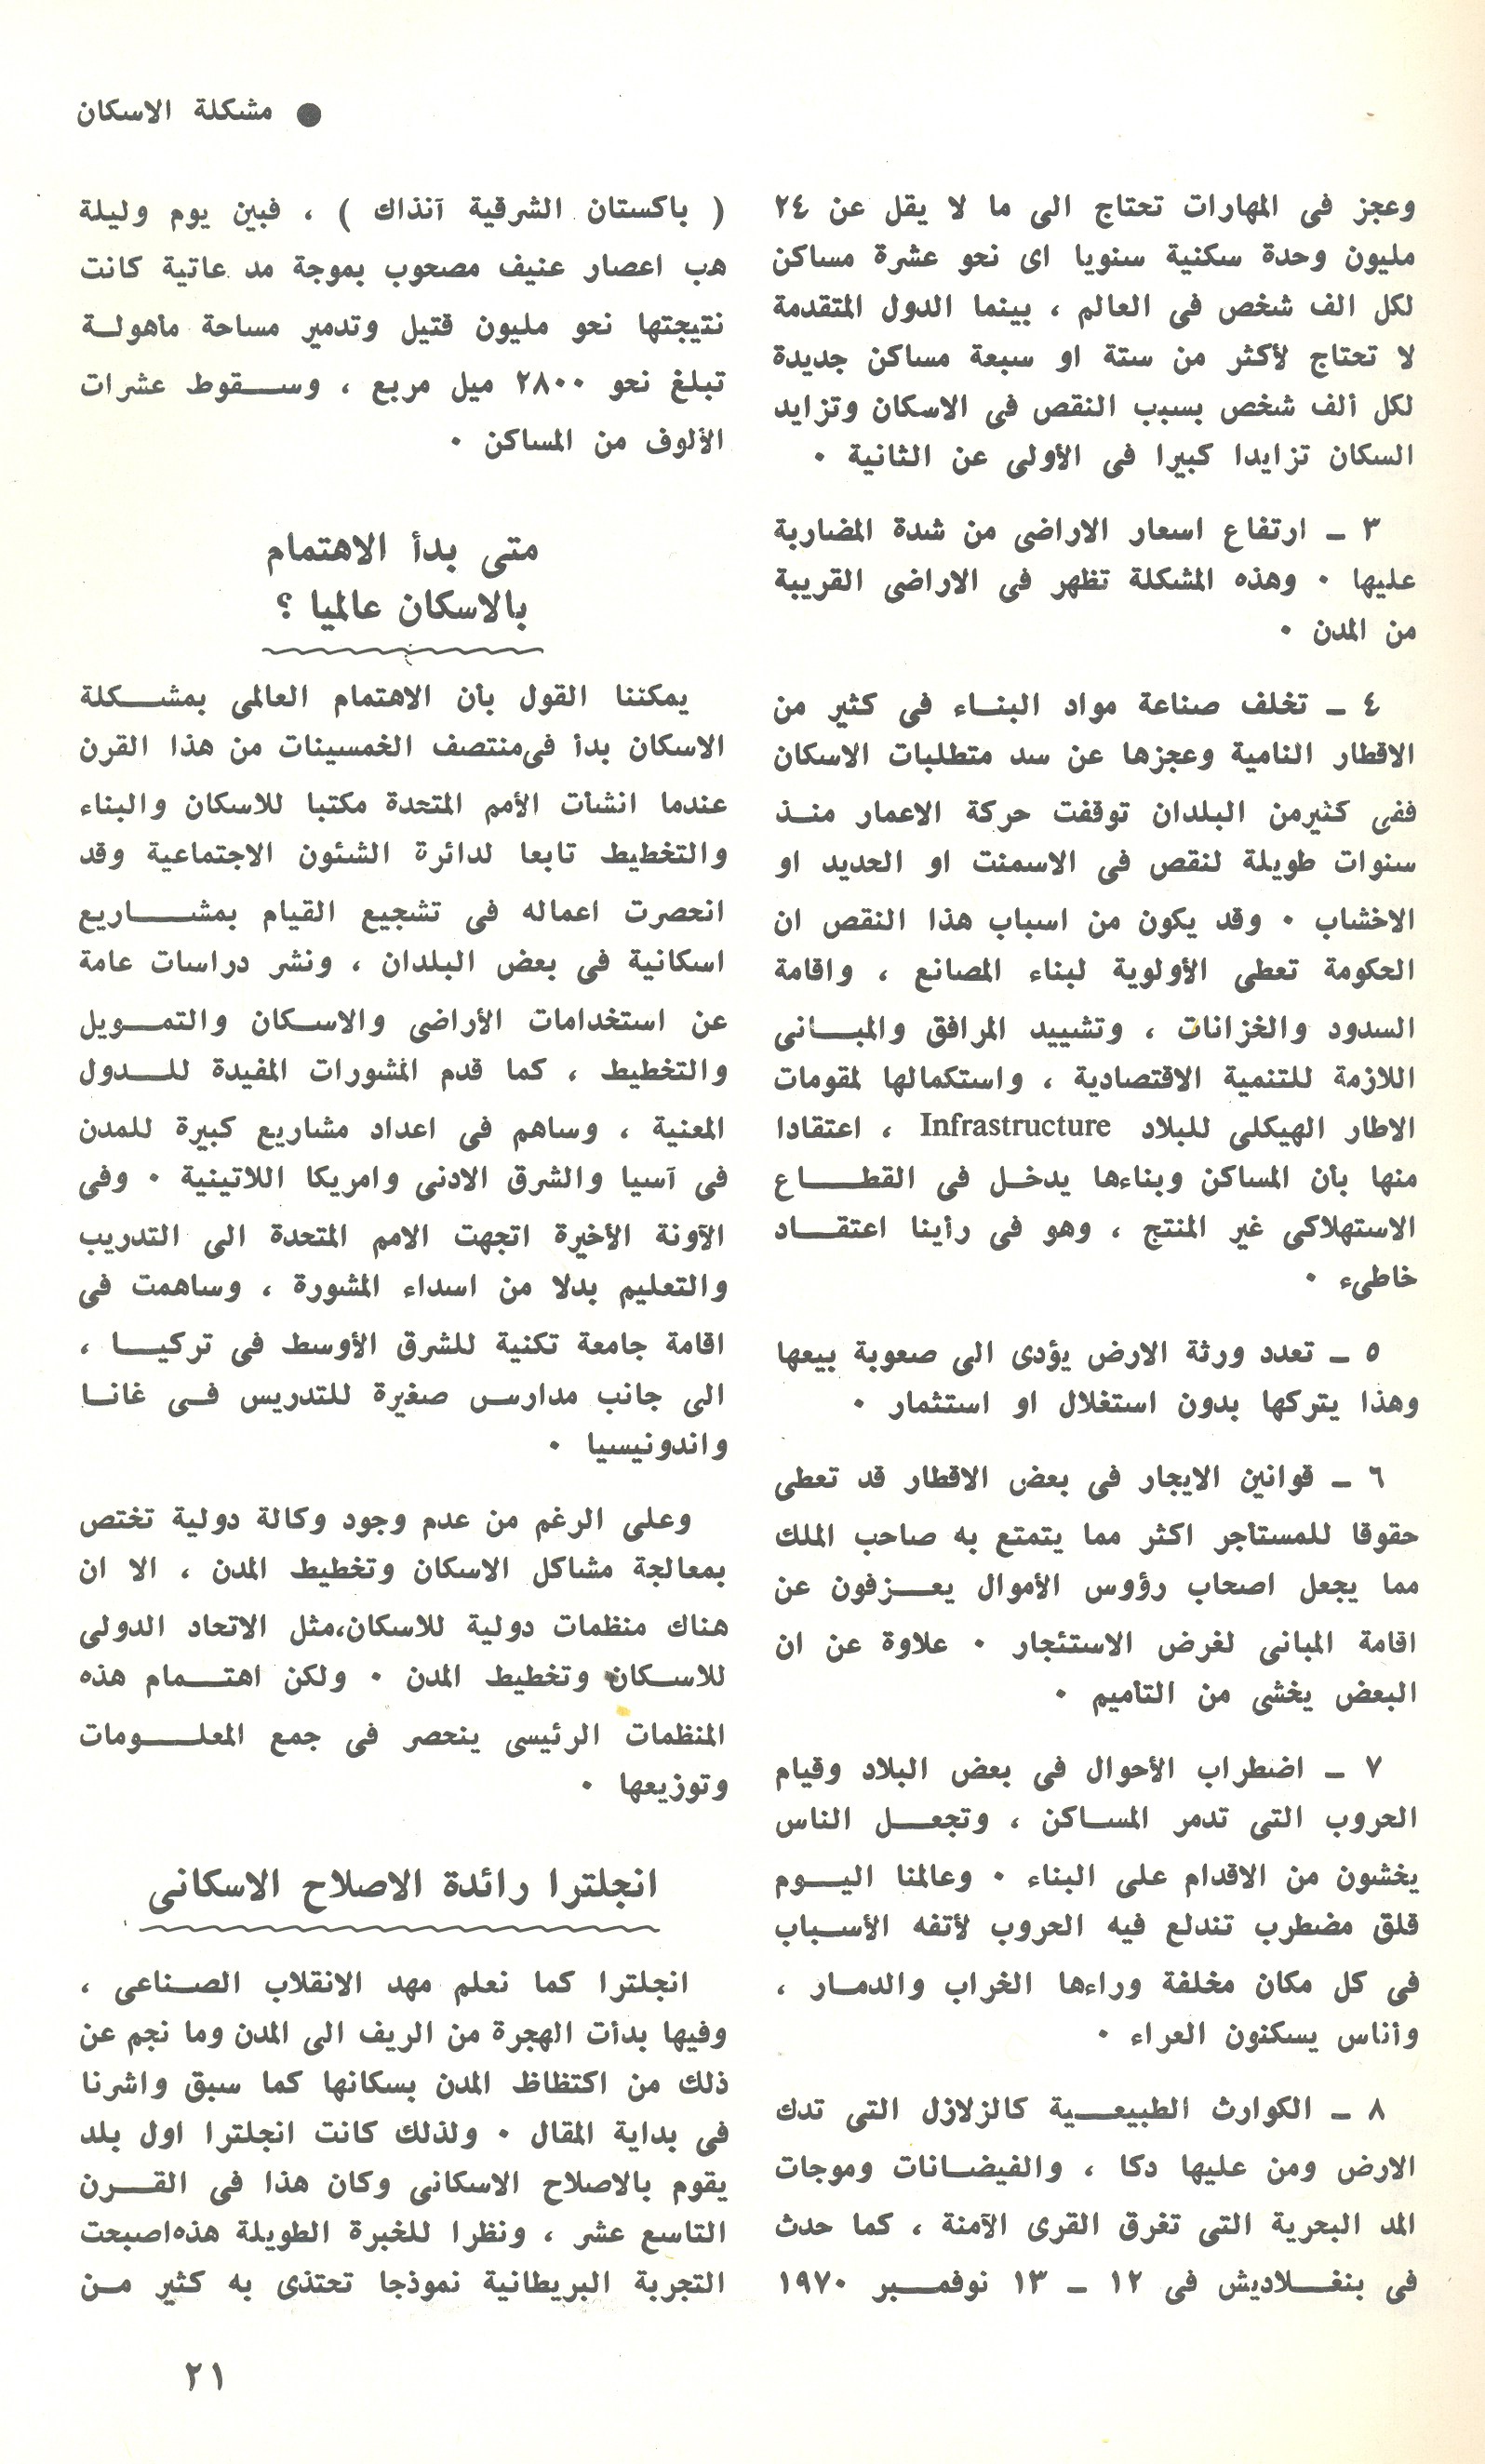 ● مشكلة الاسكان
وعجز فى المهارات تحتاج الى ما لا يقل عن ٢٤
مليون وحدة سكنية سنويا اى نحو عشرة مساكن
لكل الف شخص فى العالم ، بينما الدول المتقدمة
لا تحتاج لأكثر من ستة او سبعة مساكن جديدة
لكل ألف شخص بسبب النقص فى الاسكان وتزايد
السكان تزايدا كبيرا فى الأولى عن الثانية ٠
٣ ـ ارتفاع اسعار الاراضى من شدة المضاربة
عليها ٠ وهذه المشكلة تظهر فى الاراضى القريبة
من المدن ٠
٤ ـ تخلف صناعة مواد البناء فى كثير من
الاقطار النامية وعجزها عن سد متطلبات الاسكان
ففى كثيرمن البلدان توقفت حركة الاعمار منذ
سنوات طويلة لنقص فى الاسمنت او الحديد او
الاخشاب ٠ وقد يكون من اسباب هذا النقص ان
الحكومة تعطى الأولوية لبناء المصانع ، واقامة
السدود والخزانات ، وتشييد المرافق والمبانى
اللازمة للتنمية الاقتصادية ، واستكمالها لمقومات
الاطار الهيكلى للبلاد Infrastructure ، اعتقادا
منها بأن المساكن وبناءها يدخل فى القطاع
الاستهلاكى غير المنتج ، وهو فى رأينا اعتقاد
خاطىء ٠
٥ ـ تعدد ورثة الارض يؤدى الى صعوبة بيعها
وهذا يتركها بدون استغلال او استثمار ٠
٦ ـ قوانين الايجار فى بعض الاقطار قد تعطى
حقوقا للمستأجر اكثر مما يتمتع به صاحب الملك
مما يجعل اصحاب رؤوس الأموال يعزفون عن
اقامة المبانى لغرض الاستئجار ٠ علاوة عن ان
البعض يخشى من التأميم ٠
٧ ـ اضطراب الأحوال فى بعض البلاد وقيام
الحروب التى تدمر المساكن ، وتجعل الناس
يخشون من الاقدام على البناء ٠ وعالمنا اليوم
قلق مضطرب تندلع فيه الحروب لأتفه الأسباب
فى كل مكان مخلفة وراءها الخراب والدمار ،
وأناس يسكنون العراء ٠
٨ ـ الكوارث الطبيعية كالزلازل التى تدك
الارض ومن عليها دكا ، والفيضانات وموجات
المد البحرية التى تغرق القرى الآمنة ، كما حدث
فى بنغلاديش فى ١٢ ـ ١٣ نوفمبر ١٩٧٠
( باكستان الشرقية آنذاك ) ، فبين يوم وليلة
هب اعصار عنيف مصحوب بموجة مد عاتية كانت
نتيجتها نحو مليون قتيل وتدمير مساحة مأهولة
تبلغ نحو ٢٨٠٠ ميل مربع ، وسقوط عشرات
الألوف من المساكن ٠
متى بدأ الاهتمام
بالاسكان عالميا ؟
يمكننا القول بأن الاهتمام العالمى بمشكلة
الاسكان بدأ فىمنتصف الخمسينات من هذا القرن
عندما انشأت الأمم المتحدة مكتبا للاسكان والبناء
والتخطيط تابعا لدائرة الشئون الاجتماعية وقد
انحصرت اعماله فى تشجيع القيام بمشاريع
اسكانية فى بعض البلدان ، ونشر دراسات عامة
عن استخدامات الأراضى والاسكان والتمويل
والتخطيط ، كما قدم المشورات المفيدة للدول
المعنية ، وساهم فى اعداد مشاريع كبيرة للمدن
فى آسيا والشرق الادنى وامريكا اللاتينية ٠ وفى
الآونة الأخيرة اتجهت الامم المتحدة الى التدريب
والتعليم بدلا من اسداء المشورة ، وساهمت فى
اقامة جامعة تكنية للشرق الأوسط فى تركيا ،
الى جانب مدارس صغيرة للتدريس فى غانا
واندونيسيا ٠
وعلى الرغم من عدم وجود وكالة دولية تختص
بمعالجة مشاكل الاسكان وتخطيط المدن ، الا ان
هناك منظمات دولية للاسكان،مثل الاتحاد الدولى
للاسكان وتخطيط المدن ٠ ولكن اهتمام هذه
المنظمات الرئيسى ينحصر فى جمع المعلومات
وتوزيعها ٠
انجلترا رائدة الاصلاح الاسكانى
انجلترا كما نعلم مهد الانقلاب الصناعى ،
وفيها بدأت الهجرة من الريف الى المدن وما نجم عن
ذلك من اكتظاظ المدن بسكانها كما سبق واشرنا
فى بداية المقال ٠ ولذلك كانت انجلترا اول بلد
يقوم بالاصلاح الاسكانى وكان هذا فى القرن
التاسع عشر ، ونظرا للخبرة الطويلة هذهاصبحت
التجربة البريطانية نموذجا تحتذى به كثير من
٢١